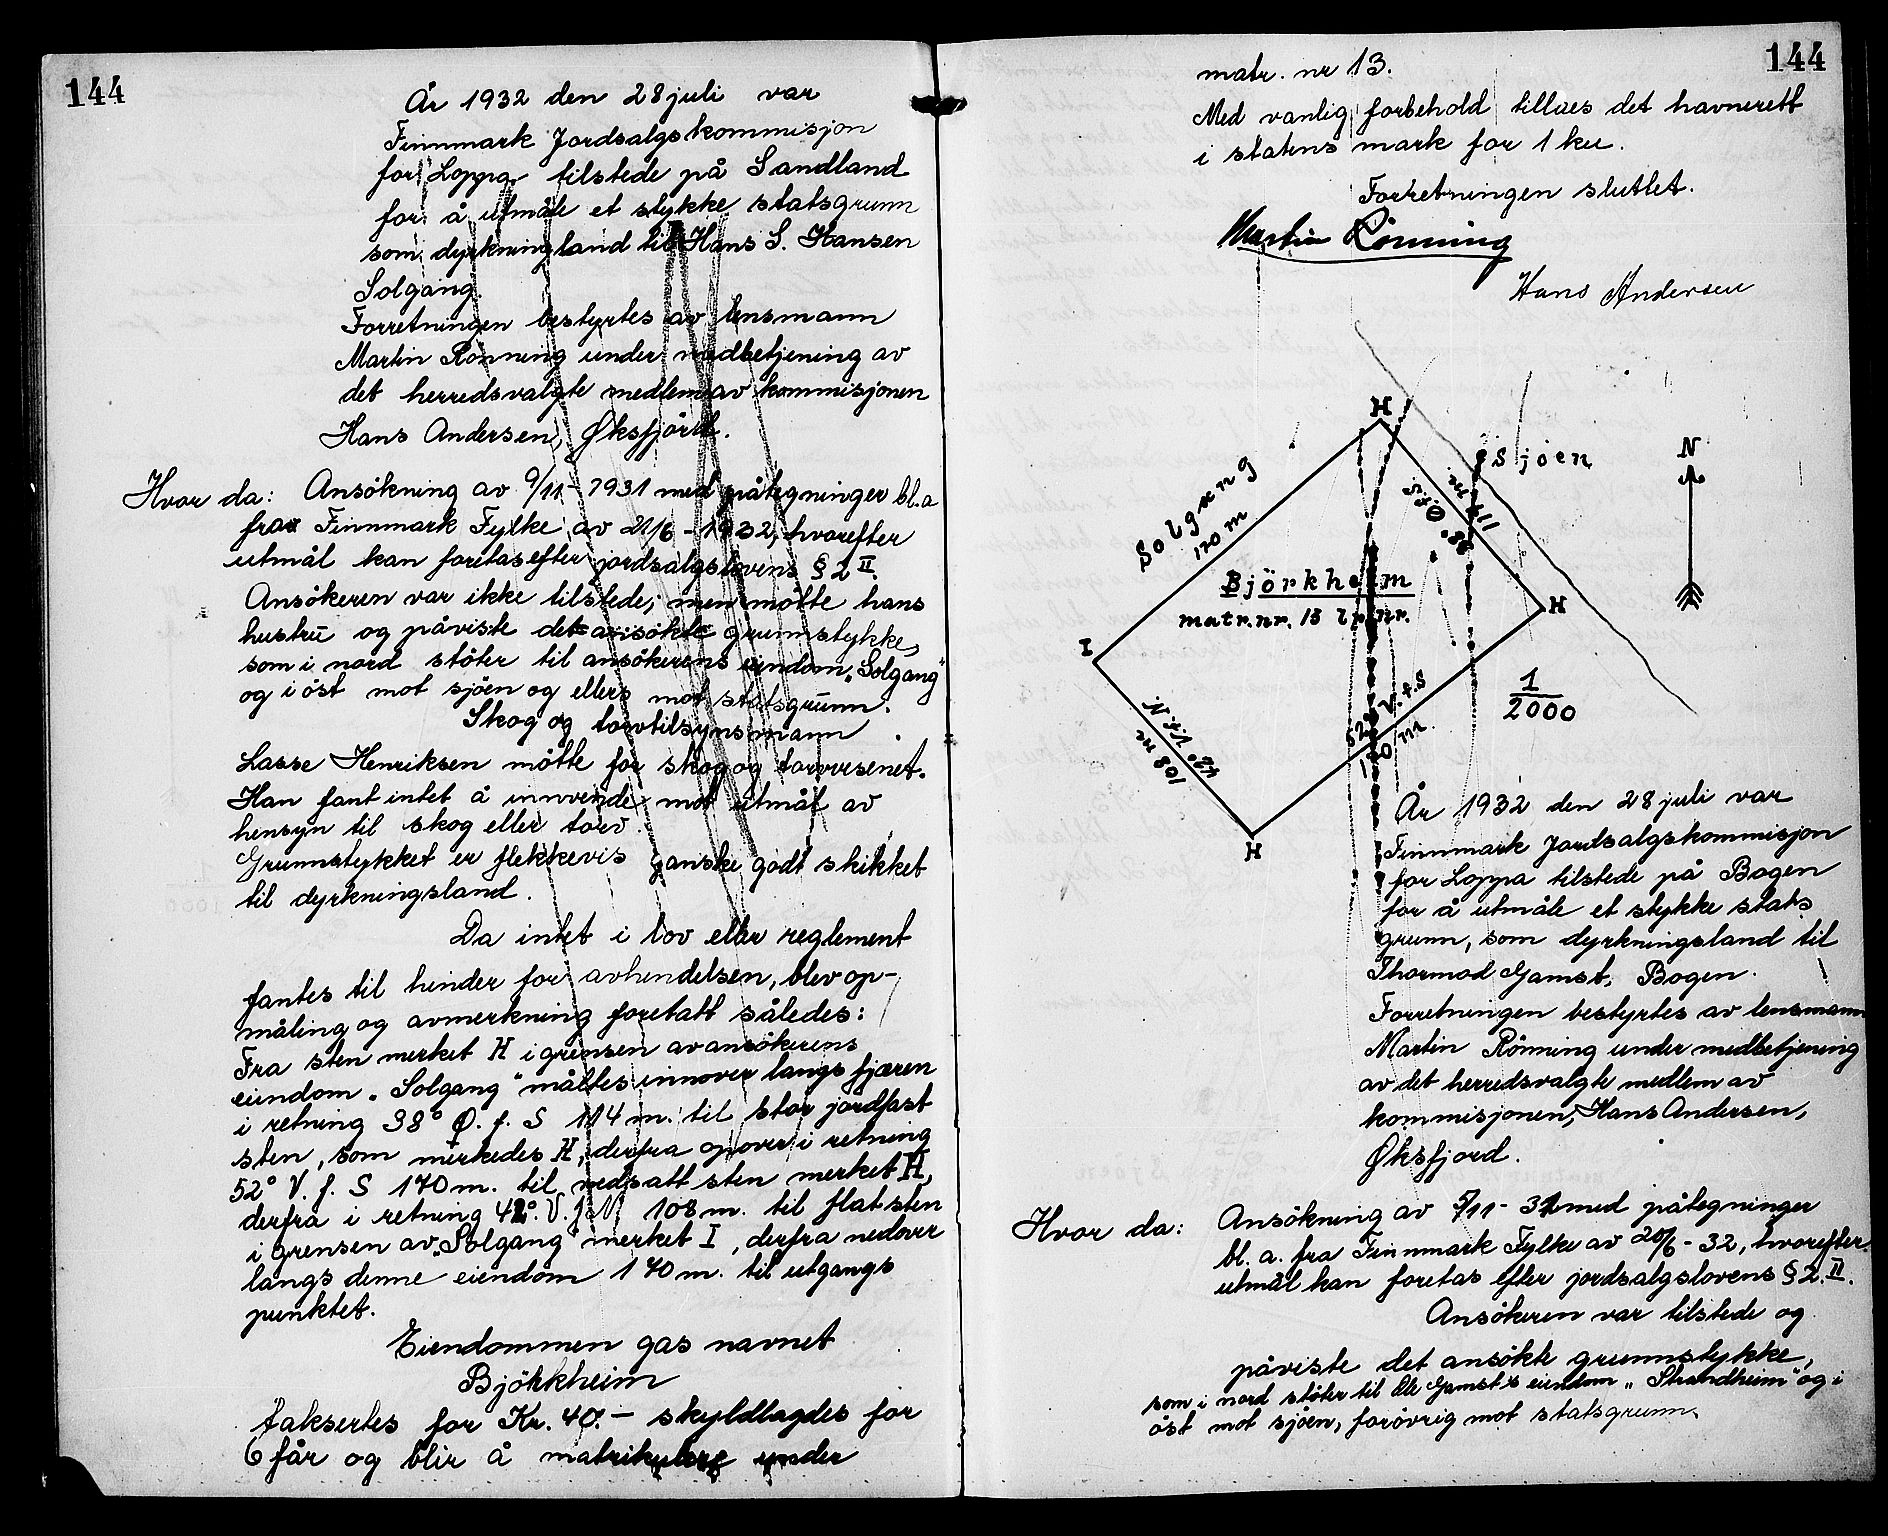 144
År 1932 den 28 juli var
Finnmark Jordsalgskommisjon
for Loppa tilstede på Sandland
for å utmåle et stykke statsgrunn
som dyrkningsland til Hans S. Hansen
Solgang.
Forretningen bestyrtes av lensmann
Martin Rönning under medbetjening av
det herredsvalgte medlem av kommisjonen
Hans Andersen, Øksfjord.
Hvor da: Ansökning av 9/11-1931 med påtegninger bl.a
fra Finnmark Fylke av 21/6-1932, hvorefter
utmål kan foretas efter jordsalgslovens § 2 II.
Ansökeren var ikke tilstede, men mötte hans
hustru og påviste det ansökte grunnstykke,
som i nord stöter til ansökerens eiendom „Solgang"
og i öst mot sjöen og ellers mot statsgrunn.
Skog og torvtilsynsmann
Lasse Henriksen mötte for skog og torvvesenet.
Han fant intet å innvende mot utmål av
hensyn til skog eller torv.
Grunnstykket er flekkevis ganske godt skikket
til dyrkningsland.
Da intet i lov eller reglement
fantes til hinder for avhendelsen, blev op-
måling og avmerkning foretatt således:
Fra sten merket H i grensen av ansökerens
eiendom „Solgang" måltes innover langs fjæren
i retning 38° Ø. f. S 114 m. til stor jordfast
sten, som merkedes H, derfra opover i retning
52° V. f. S 170 m. til nedsatt sten merket H,
derfra i retning 42°. V. f. N 108 m. til flat sten
i grensen av „Solgang" merket I, derfra nedover
langs denne eiendom 170 m. til utgangs
punktet.
Eiendommen gas navnet
Björkheim
taksertes for Kr. 40.- skyldlagdes for
6 får og blir å matrikulere under
144
matr. nr 13.
Med vanlig forbehold tillaes det havnerett
i statens mark for 1 ku.
Forretningen sluttet.
Martin Rönning
Hans Andersen
H
Sjöen
N
Solgang
170 m
114 m
38° Ö.f.S
Björkheim
matr.nr. 13 lp.nr.
H
I
1
2000
52° V.f.S
170 m
42° V.f.N
108 m
H
År 1932 den 28 juli var
Finnmark Jordsalgskommisjon
for Loppa tilstede på Bogen
for å utmåle et stykke stats
grunn, som dyrkningsland til
Thormod Gamst, Bogen.
Forretningen bestyrtes av lensmann
Martin Rönning under medbetjening
av det herredsvalgte medlem av
kommisjonen, Hans Andersen,
Øksfjord.
Hvor da: Ansökning av 5/11-31 med påtegninger
bl. a. fra Finnmark Fylke av 20/6-32, hvorefter
utmål kan foretas efter jordsalgslovens § 2. II.
Ansökeren var tilstede og
påviste det ansökte grunnstykke,
som i nord stöter til Ole Gamst's eiendom „Strandheim" og i
öst mot sjöen, forövrig mot statsgrunn.